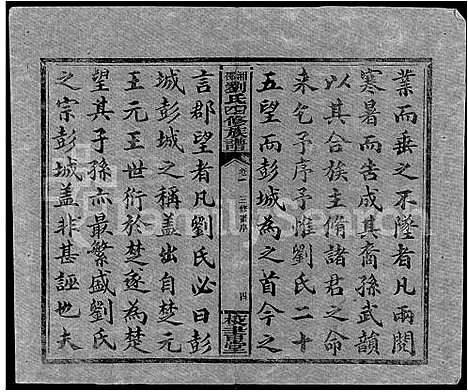 業而垂之不墜者凡兩閱
寒暑而告成其裔孫武韻
以其合族主脩諸君之命
來乞予序予惟劉氏二十
五望而彭城為之首今之
劉氏四修族譜
卷一
三修舊序
四
藜書堂
言郡望者凡劉氏必曰彭
城彭城之稱蓋出自楚元
王元王世衍於楚遂為楚
望其子孫亦最繁盛劉氏
之宗彭城蓋非甚誣也夫
FamilySearch